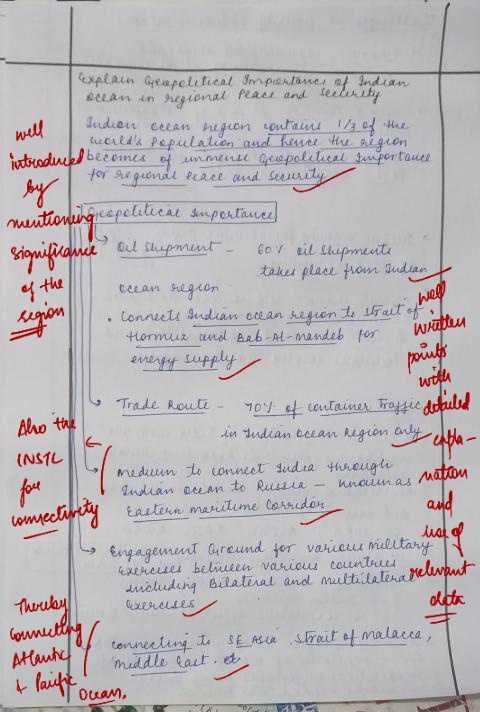 Explain Geopolitical Importance of Indian
ocean in regional Peace and Security
Indian ocean region contains 1/3 of the
World's Population and hence the region
becomes of immense Geopolitical Importance
for Regional Peace and Security
well
introduced
by
mentioning
significance
of the
region
Geopolitical Importance
Oil Shipment - 60% oil shipments
takes place from Indian
ocean region
• Connects Indian ocean region to Strait of
Hormuz and Bab-Al-mandeb for
energy supply
well
written
points
with
detailed
expla-
nation
and
use of
relevant
data
Trade Route - 70% of container Traffic
in Indian Ocean Region only
Also the
INSTC
for
connectivity
medium to connect India through
Indian ocean to Russia - known as
Eastern maritime Corridor
Engagement Ground for various military
Exercises between various countries
including Bilateral and multilateral
Exercises
Thereby
connecting
Atlantic
& Pacific
Ocean.
connecting to SE ASIA, Strait of Malacca,
middle East. etc